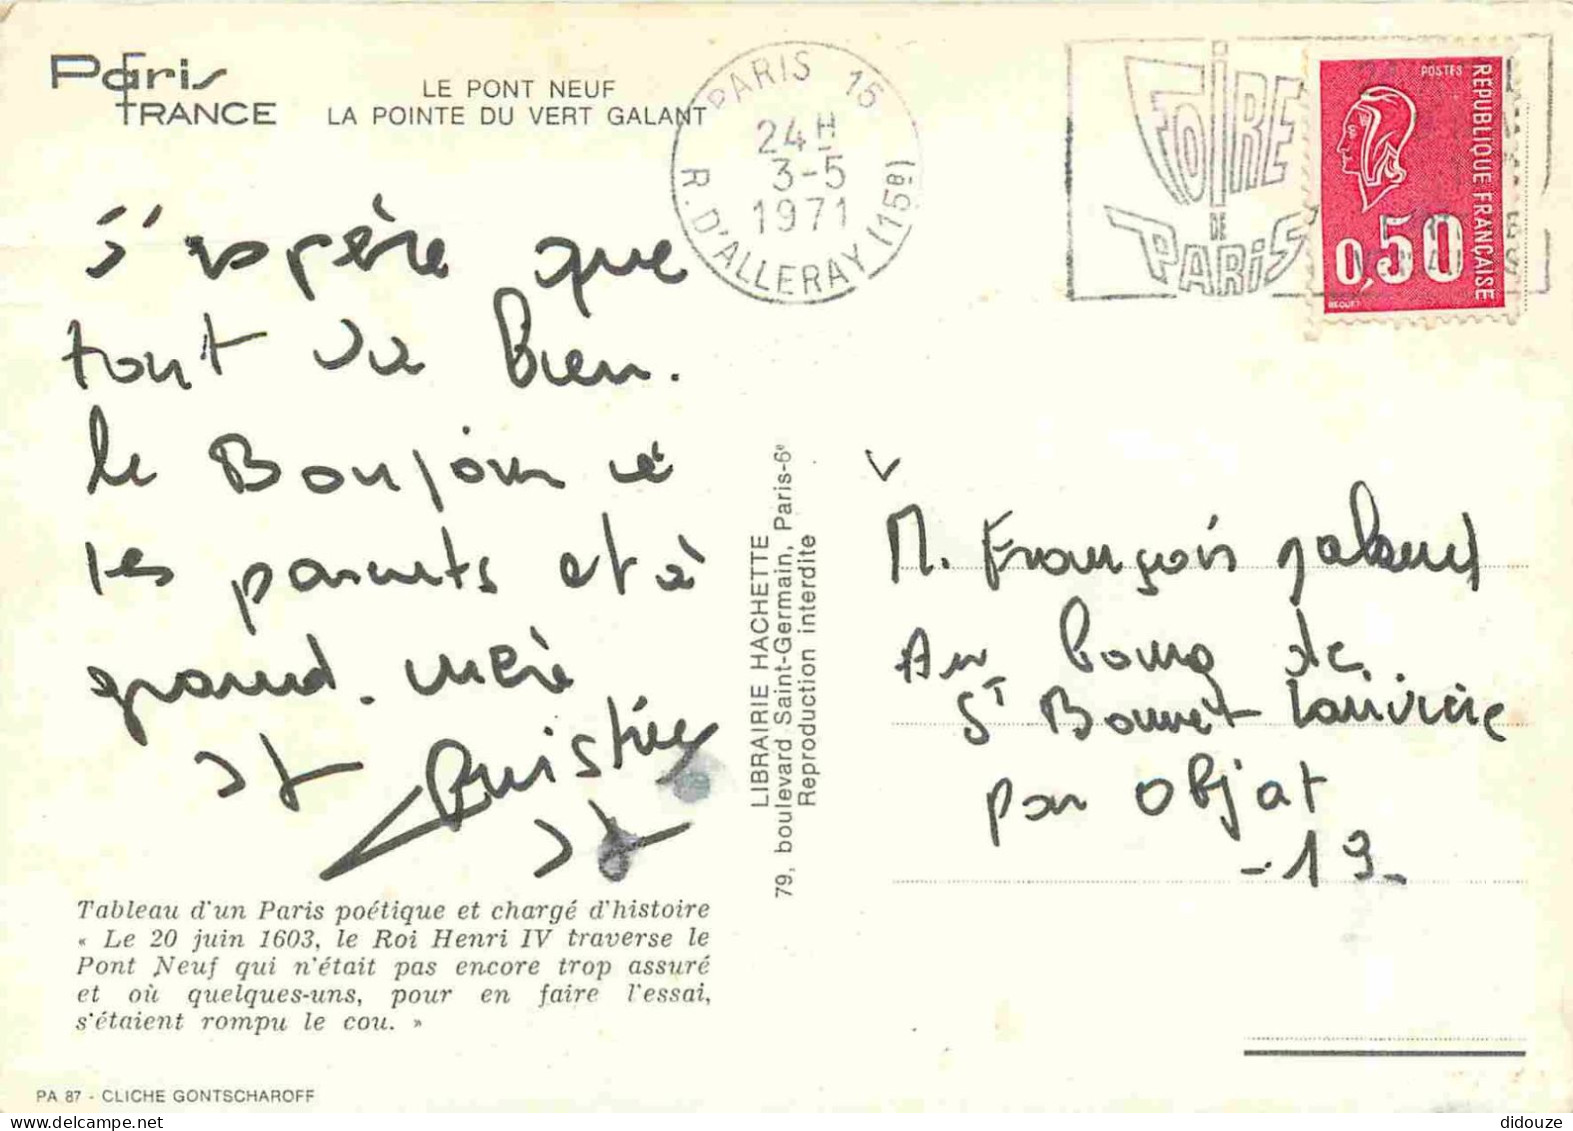 Paris
FRANCE
LE PONT NEUF
LA POINTE DU VERT GALANT
PARIS 15
24H
3-5
1971
R. D'ALLERAY (15e)
FOIRE
DE
PARIS
POSTES
RÉPUBLIQUE FRANÇAISE
0,50
BEQUET
J'espère que
tout va bien.
le Bonjour
les parents et à
grand-mère
Christine
LIBRAIRIE HACHETTE
79, boulevard Saint-Germain, Paris-6e
Reproduction interdite
M. François
Au bourg de
St Bonnet Larivière
par Objat
-19-
Tableau d'un Paris poétique et chargé d'histoire
« Le 20 juin 1603, le Roi Henri IV traverse le
Pont Neuf qui n'était pas encore trop assuré
et où quelques-uns, pour en faire l'essai,
s'étaient rompu le cou. »
PA 87 - CLICHE GONTSCHAROFF
didouze